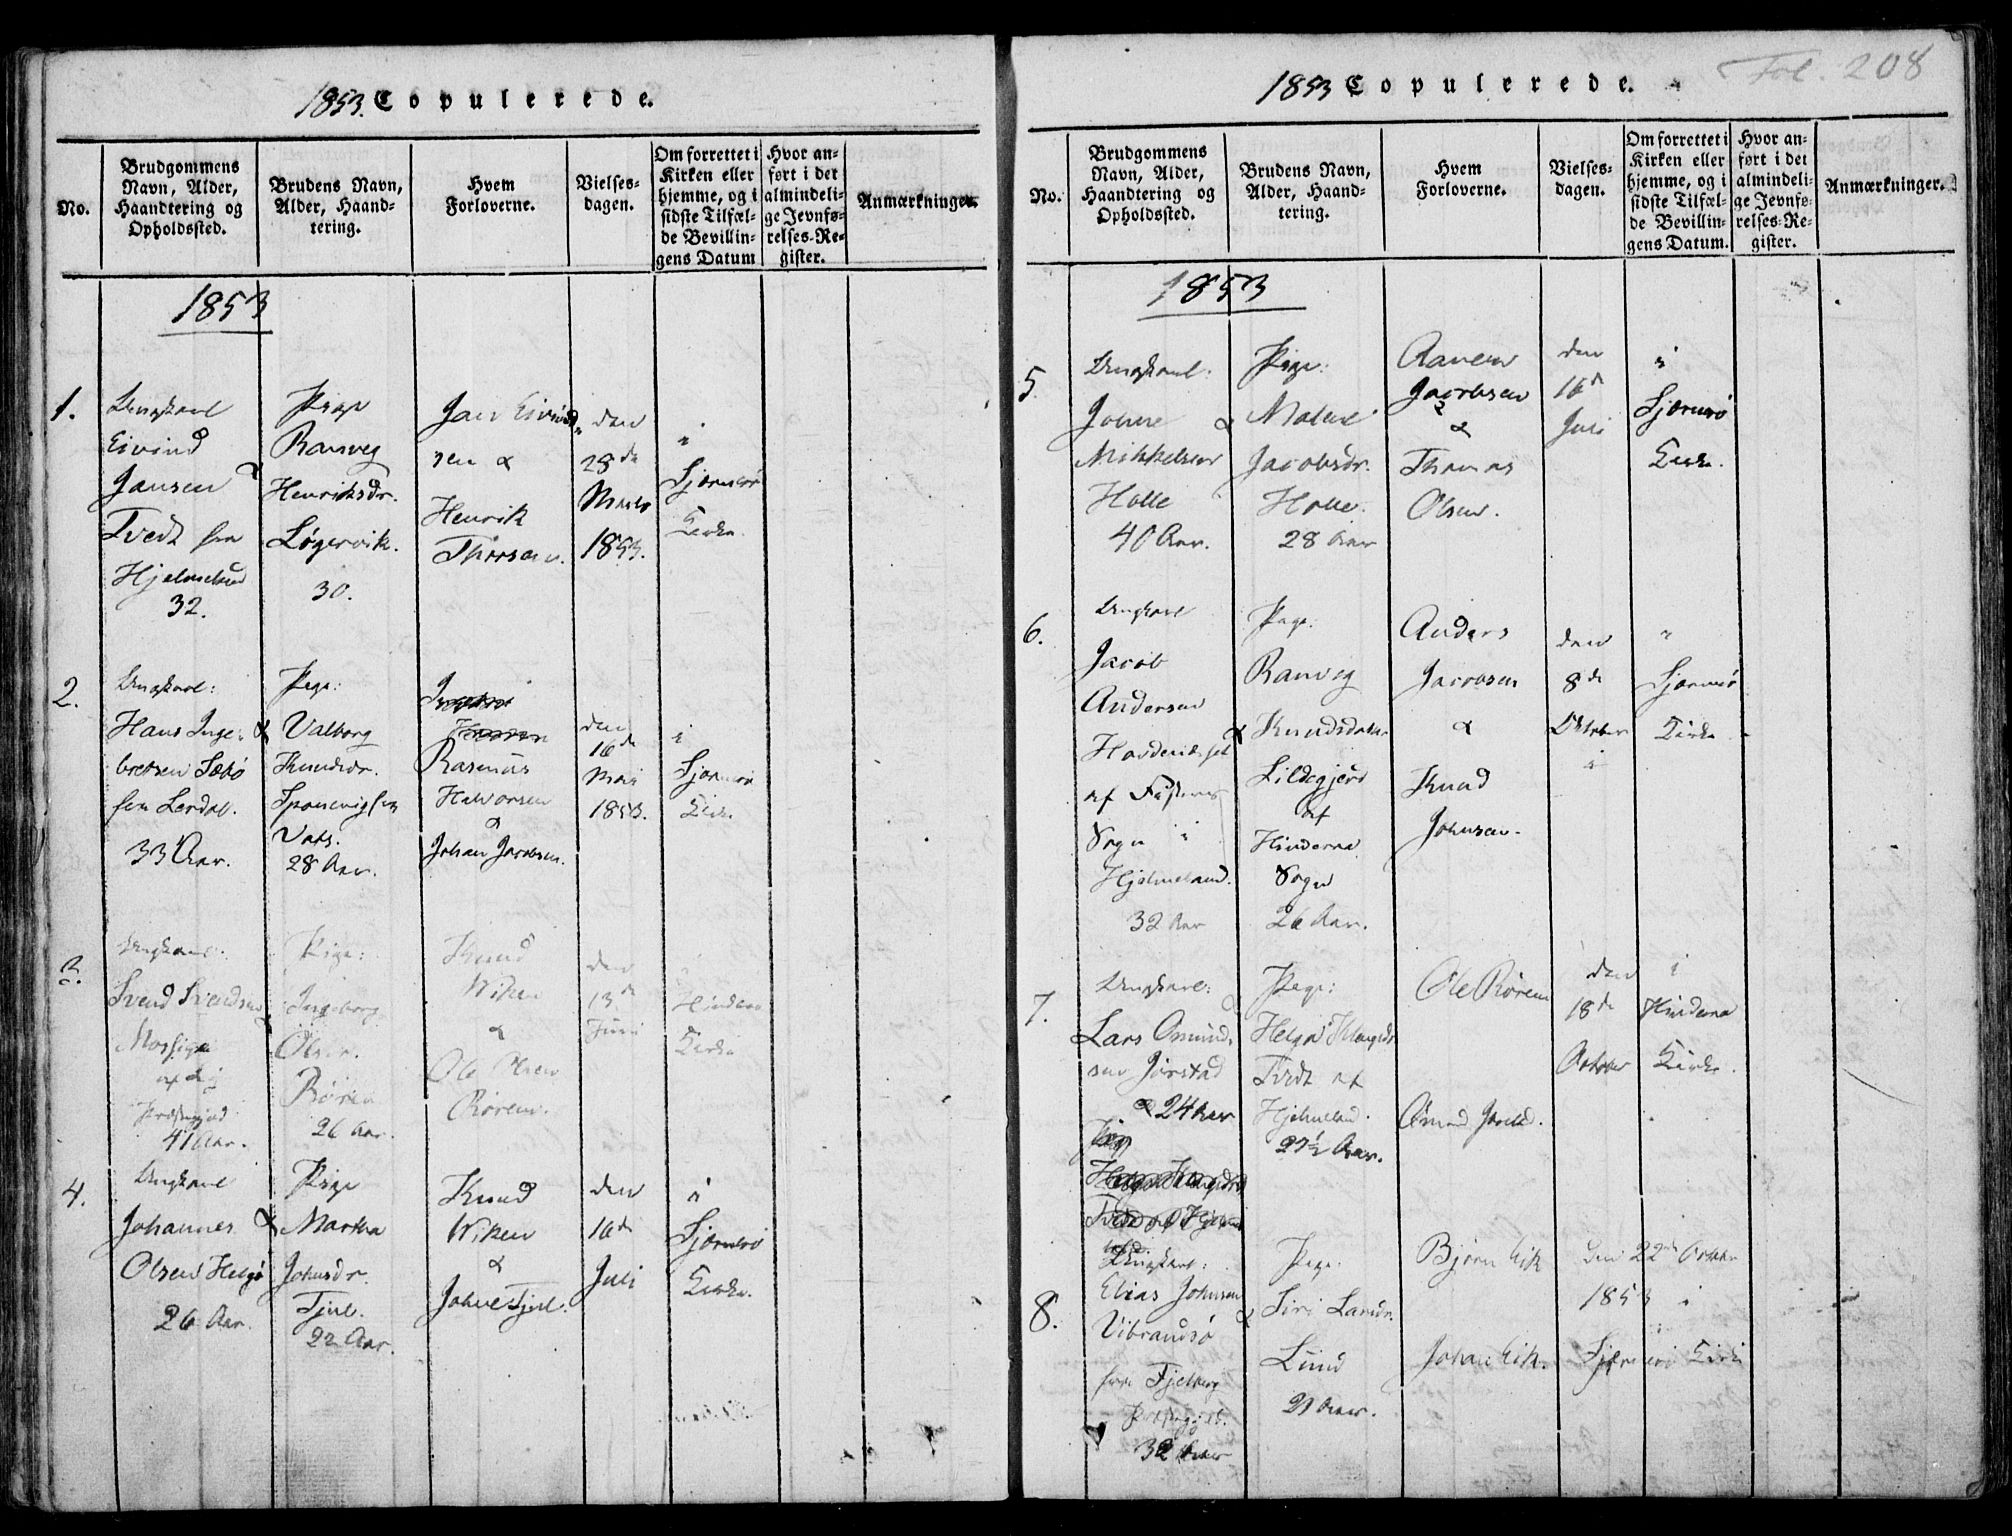 1853. Copulerede.
No.
Brudgommens Navn, Alder, Haandtering og Opholdssted.
Brudens Navn, Alder, Haandtering.
Hvem Forloverne.
Vielsesdagen.
Om forrettet i Kirken eller hjemme, og i sidste Tilfælde Bevillingens Datum
Hvor anført i det almindelige Jevnførelses-Register.
Anmærkninger.
1853
1.
Ungkarl
Eivind
Jansen &
Tvedt fra
32.
Pige
Ransveg
Henriksdr.
Løgervik.
30.
Jan Eivind-
sen &
Henrik
Thorsen.
den
28de
Marts
1853.
i
Sjærnerø
Kirke.
2.
Ungkarl:
Hans Inge- &
bretsen Sæbø
fra
33 Aar.
Pige:
Valborg
Knudsdr.
Vats.
28 Aar.
Rasmus
Halvorsen
&
Johan Jacobsen.
den
16de
Mai
1853.
i
Sjærnerø
Kirke
3.
Ungkarl:
Svend Svendsen
Mossige
41 Aar.
Pige:
Ingeborg
Olsdr.
Rørem
26 Aar.
Knud
Wiken
&
Ole Olsen
Rørem.
den
13de
Juni
i
Hinderaa
Kirke
4.
Ungkarl
Johannes &
Olsen Helgø
26 Aar.
Pige
Martha
Johnsdr.
22 Aar.
Knud
Wiken
&
den
16de
Juli
i
Sjærnerø
Kirke.
Fol. 208
1853 Copulerede.
No.
Brudgommens Navn, Alder, Haandtering og Opholdssted.
Brudens Navn, Alder, Haandtering.
Hvem Forloverne.
Vielsesdagen.
Om forrettet i Kirken eller hjemme, og i sidste Tilfælde Bevillingens Datum.
Hvor anført i det almindelige Jevnførelses-Register.
Anmærkninger.
1853
5.
Ungkarl:
Johne &
Mikkelsen
Halle
40 Aar.
Pige:
Malene
Jacobsdr.
Halle.
28 Aar
Jacobsen
&
Thomas
Olsen.
den
16de
Juli
i
Sjærnerø
Kirke.
6.
Ungkarl
Jacob
Andersen
&
Sogn i
Hjelmeland.
32 Aar
Pige:
Ranveg
Knudsdatter
af
Hinderaa
Sogn
26 Aar.
Anders
Jacobsen
&
Knud
Johnsen.
den
8de
Oktober
i
Sjærnerø
Kirke
7.
Ungkarl:
Lars Omund-
sen Jørstad
& 24 Aar
Pige:
Helga
Tvedt af
Hjelmeland.
27½ Aar.
Ole Rørem
den
18de
October
i
Hinderaa
Kirke.
8.
Ungkarl:
Elias Johnsen
Vibrandsø &
fra Fjelberg
32 Aar
Pige:
Siri Larsdr.
Lund
Bjørn Eik
Johan Eik.
den 22de October
1853 i
Sjærnerø Kirke